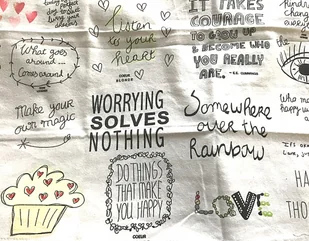 Listen
to your
heart
COEUR
BLONDE
IT TAKES
COURAGE
TO GROW UP
& BECOME WHO
YOU REALLY
ARE. - E.E. CUMMINGS
What goes
around...
Comes around
Make your
own magic
WORRYING
SOLVES
NOTHING
Somewhere
over the
Rainbow
DO THINGS
THAT MAKE
YOU HAPPY
COEUR
LOVE